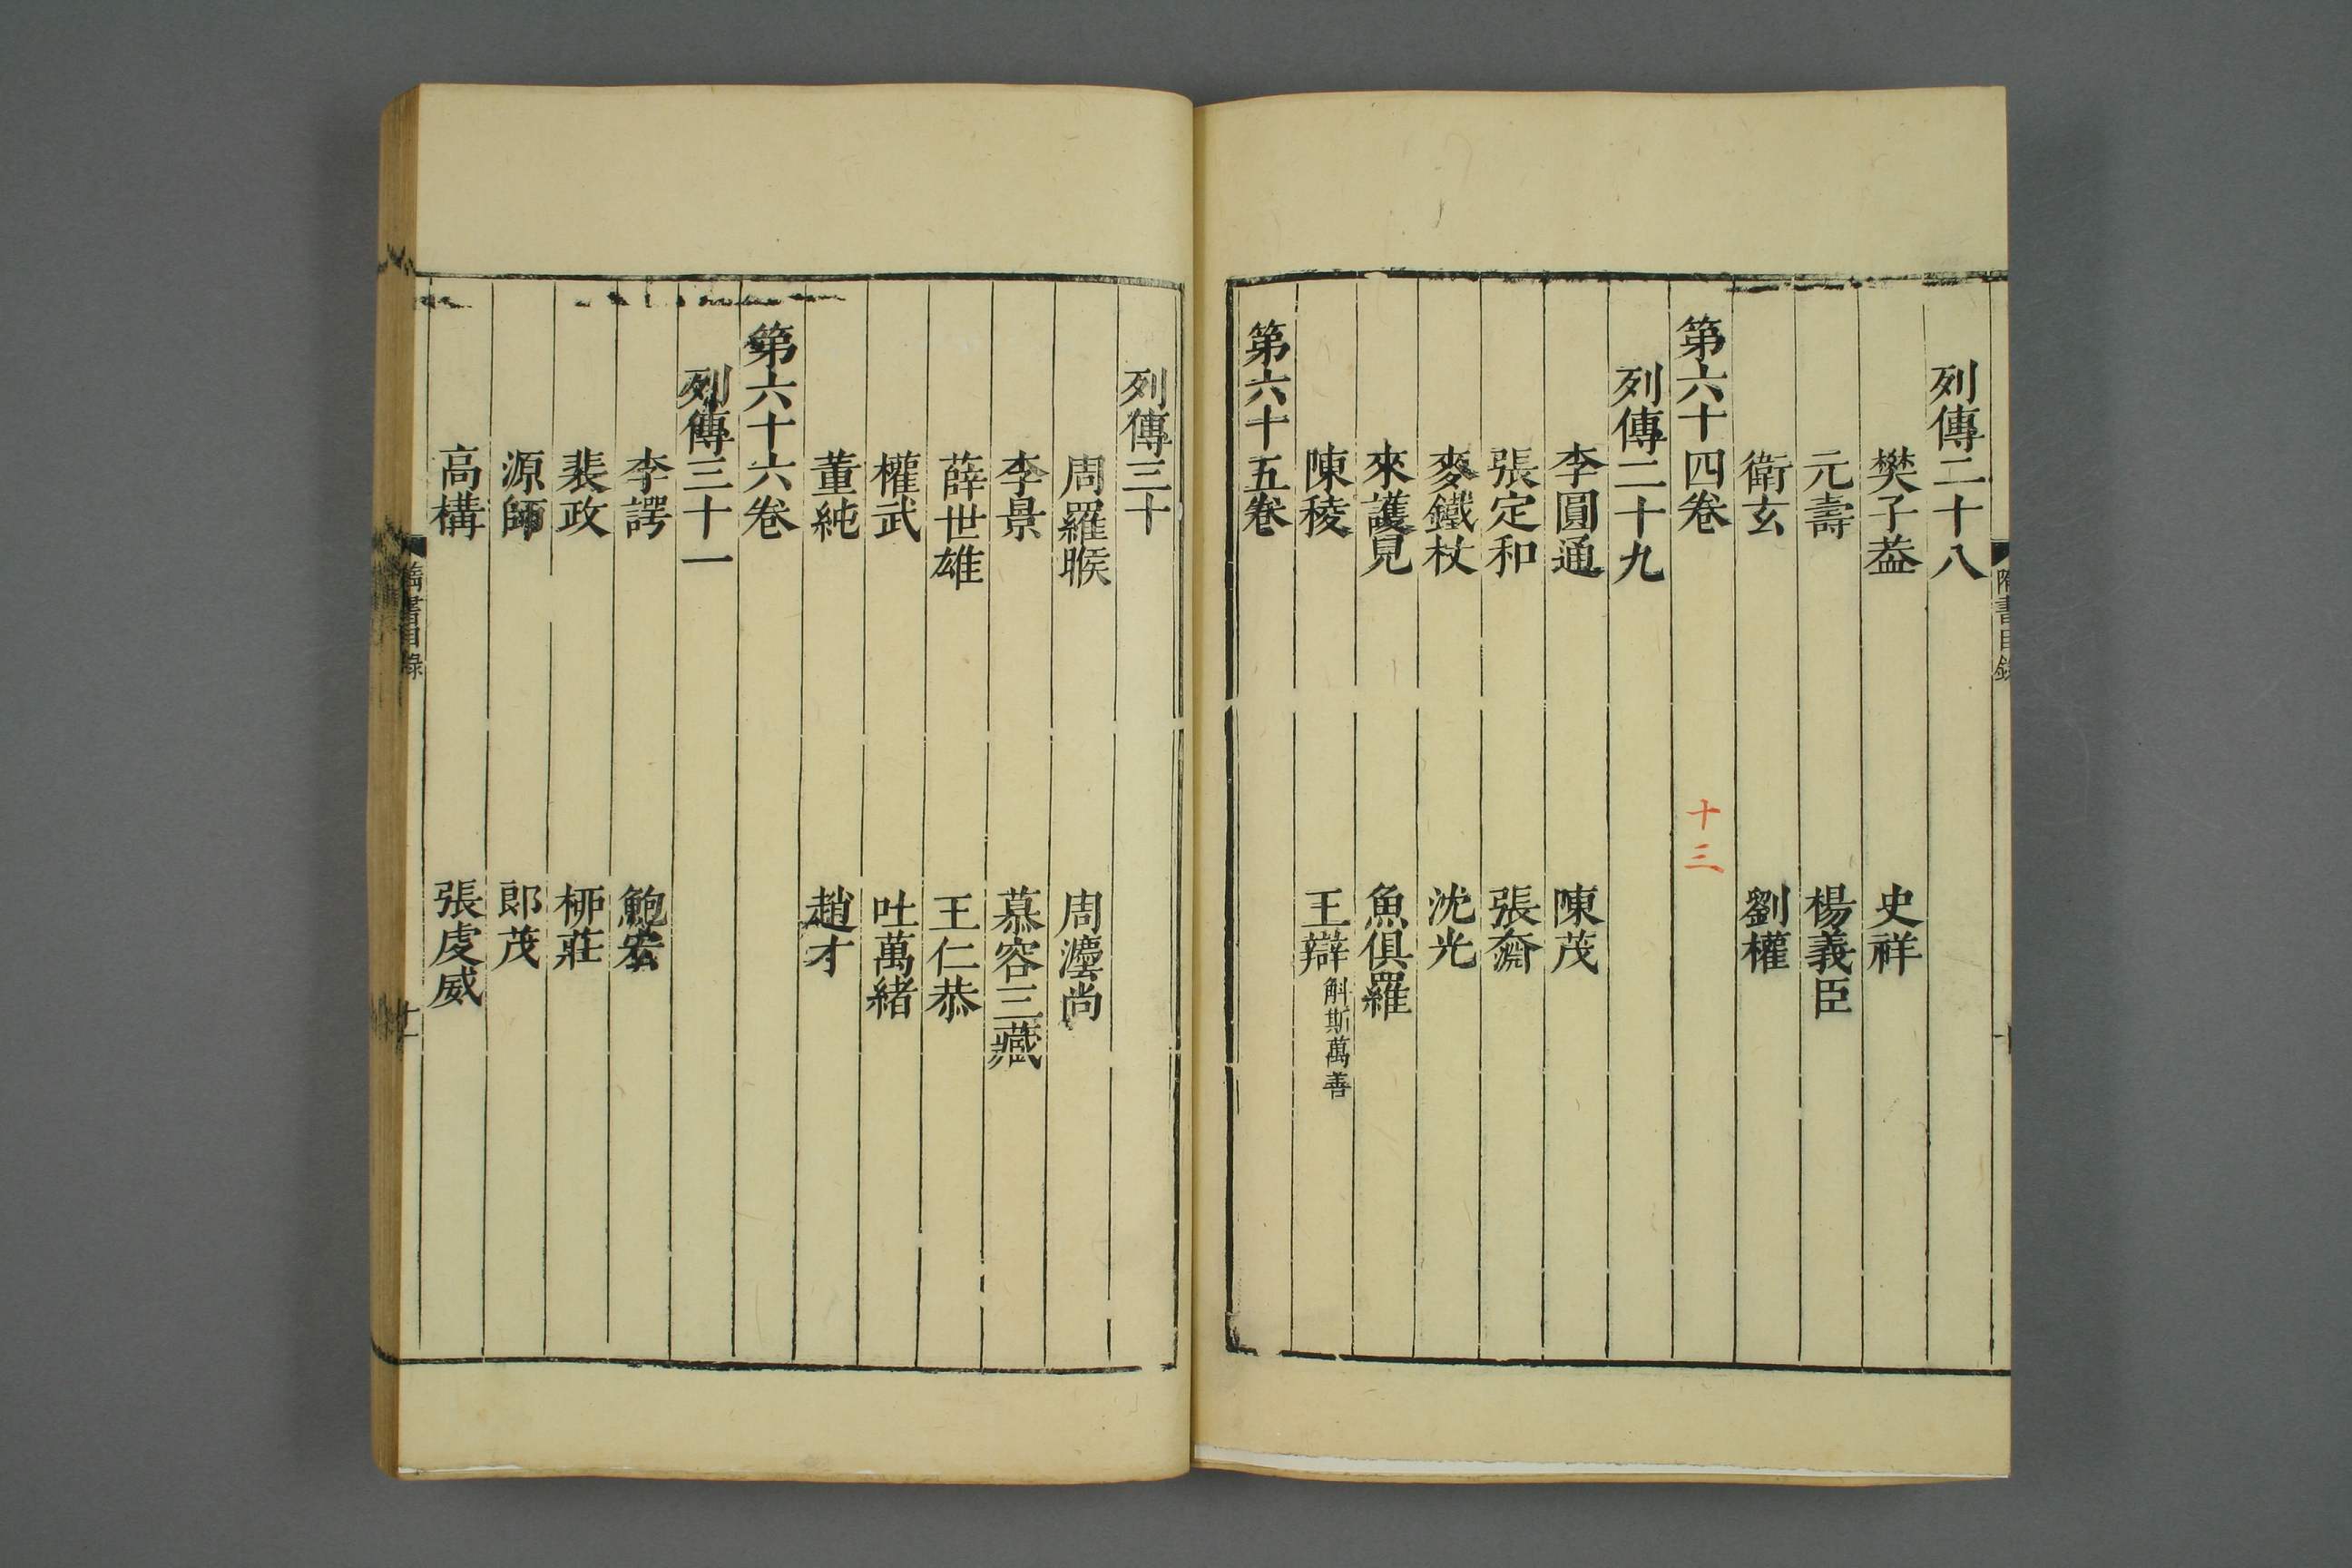 列傳二十八
樊子葢 史祥
元壽 楊義臣
衛玄 劉權
第六十四卷
十三
列傳二十九
李圓通 陳茂
張定和 張奫
麥鐵杖 沈光
來護兒 魚俱羅
陳稜 王辯 斛斯萬善
第六十五卷
隋書目錄
列傳三十
周羅睺 周灋尚
李景 慕容三藏
薛世雄 王仁恭
權武 吐萬緒
董純 趙才
第六十六卷
列傳三十一
李諤 鮑宏
裴政 柳莊
源師 郎茂
高構 張虔威
隋書目錄